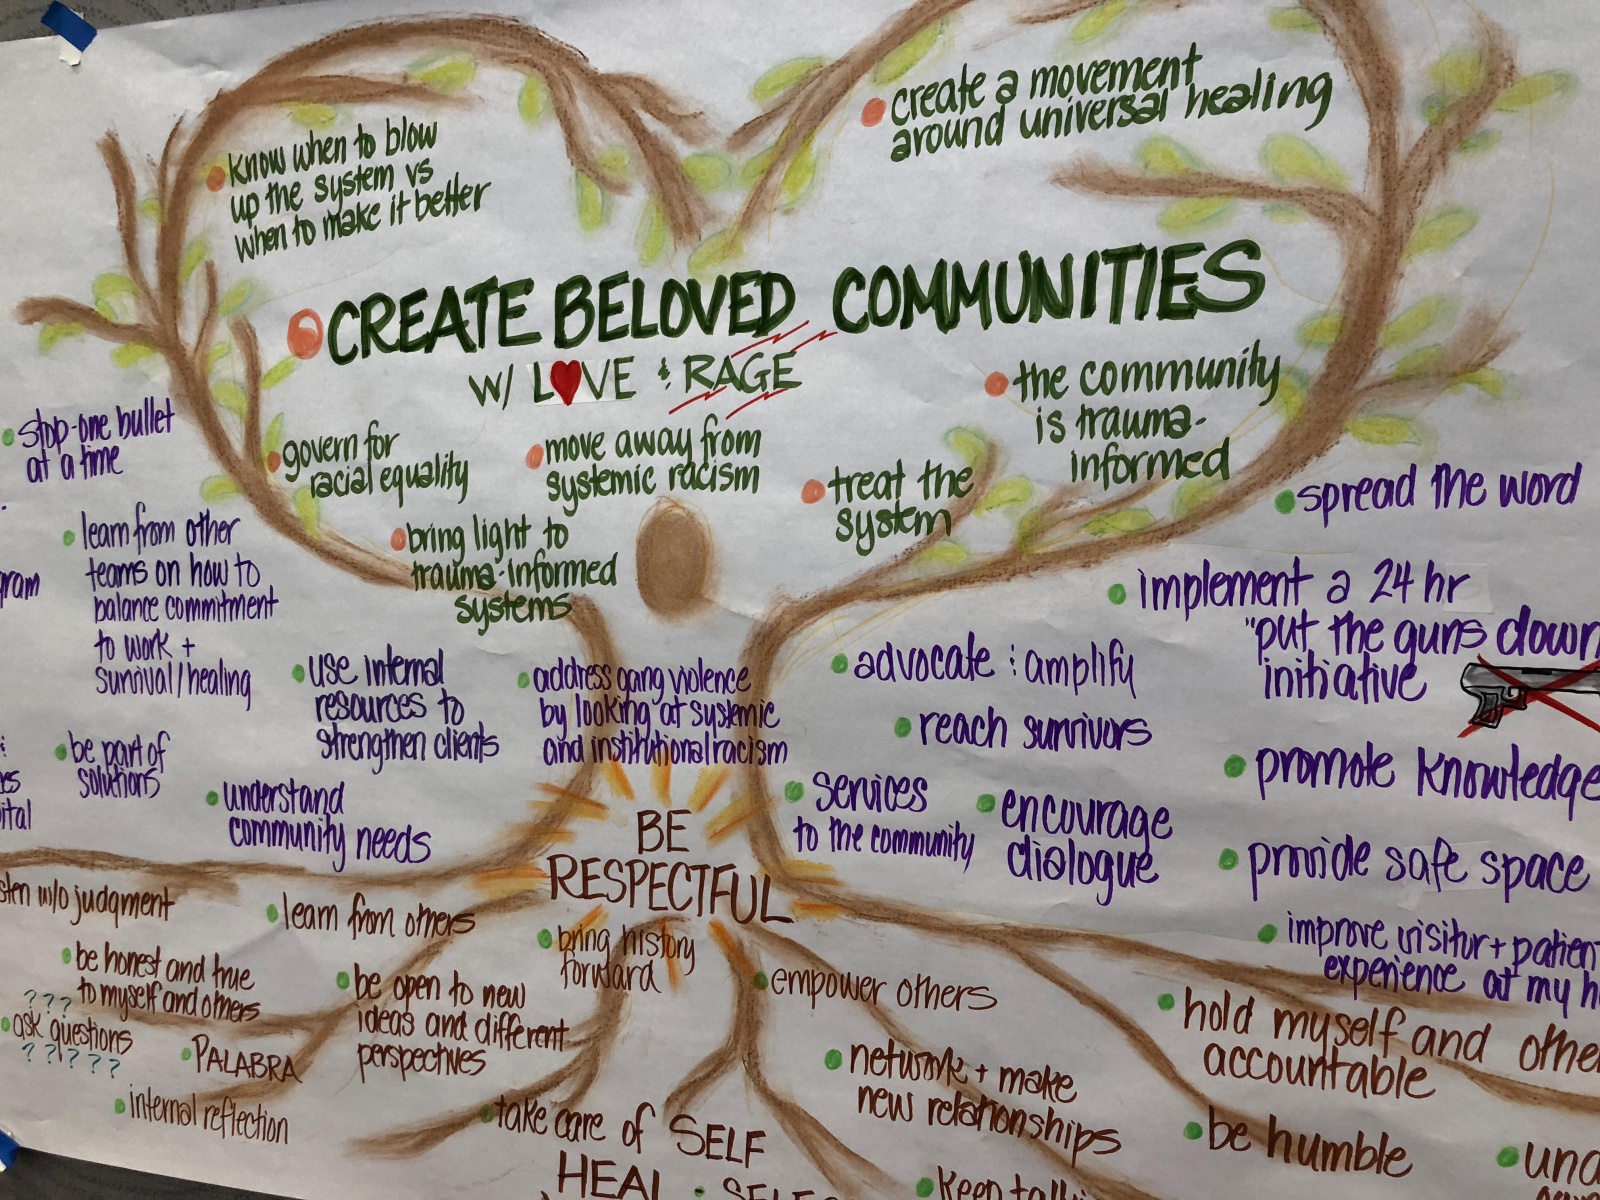 know when to blow
up the system vs
when to make it better
create a movement
around universal healing
CREATE BELOVED COMMUNITIES
W/ LOVE & RAGE
govern for
racial equality
move away from
systemic racism
treat the
system
the community
is trauma-
informed
bring light to
trauma-informed
systems
stop-one bullet
at a time
learn from other
teams on how to
balance commitment
to work +
survival/healing
be part of
solutions
use internal
resources to
strengthen clients
understand
community needs
address gang violence
by looking at systemic
and institutional racism
advocate & amplify
reach survivors
services
to the community
encourage
dialogue
spread the word
implement a 24 hr
"put the guns down
initiative
promote knowledge
provide safe space
improve visitor + patient
experience at my h
BE
RESPECTFUL
w/o judgment
learn from others
be honest and true
to myself and others
???
ask questions
?????
PALABRA
internal reflection
be open to new
ideas and different
perspectives
bring history
forward
empower others
network + make
new relationships
hold myself and
accountable
be humble
take care of SELF
HEAL
keep